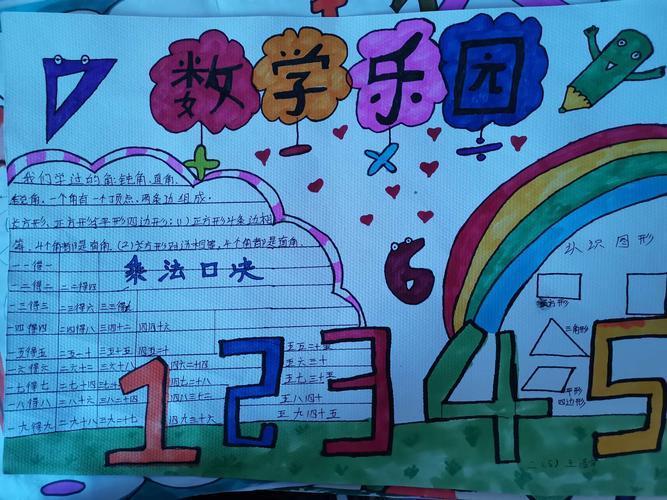 数学乐园
+ − × ÷
我们学过的角:钝角、直角、
锐角。一个角有一个顶点,两条边组成。
长方形、正方形和平行四边形:(1)正方形4条边相
等,4个角都是直角。(2)长方形对边相等,4个角都是直角。
乘法口决
一一得一
一二得二 二二得四
一三得三 二三得六 三三得九
一四得四 二四得八 三四十二 四四十六
一五得五 二五一十 三五十五 四五二十 五五二十五
一六得六 二六十二 三六十八 四六二十四 五六三十
一七得七 二七十四 四七二十八 五七三十五
一八得八 二八十六 三八二十四 五八四十
一九得九 二九十八 三九二十七 四九三十六 五九四十五
6
认识图形
长方形
三角形
平行
四边形
1 2 3 4 5
二(5)王